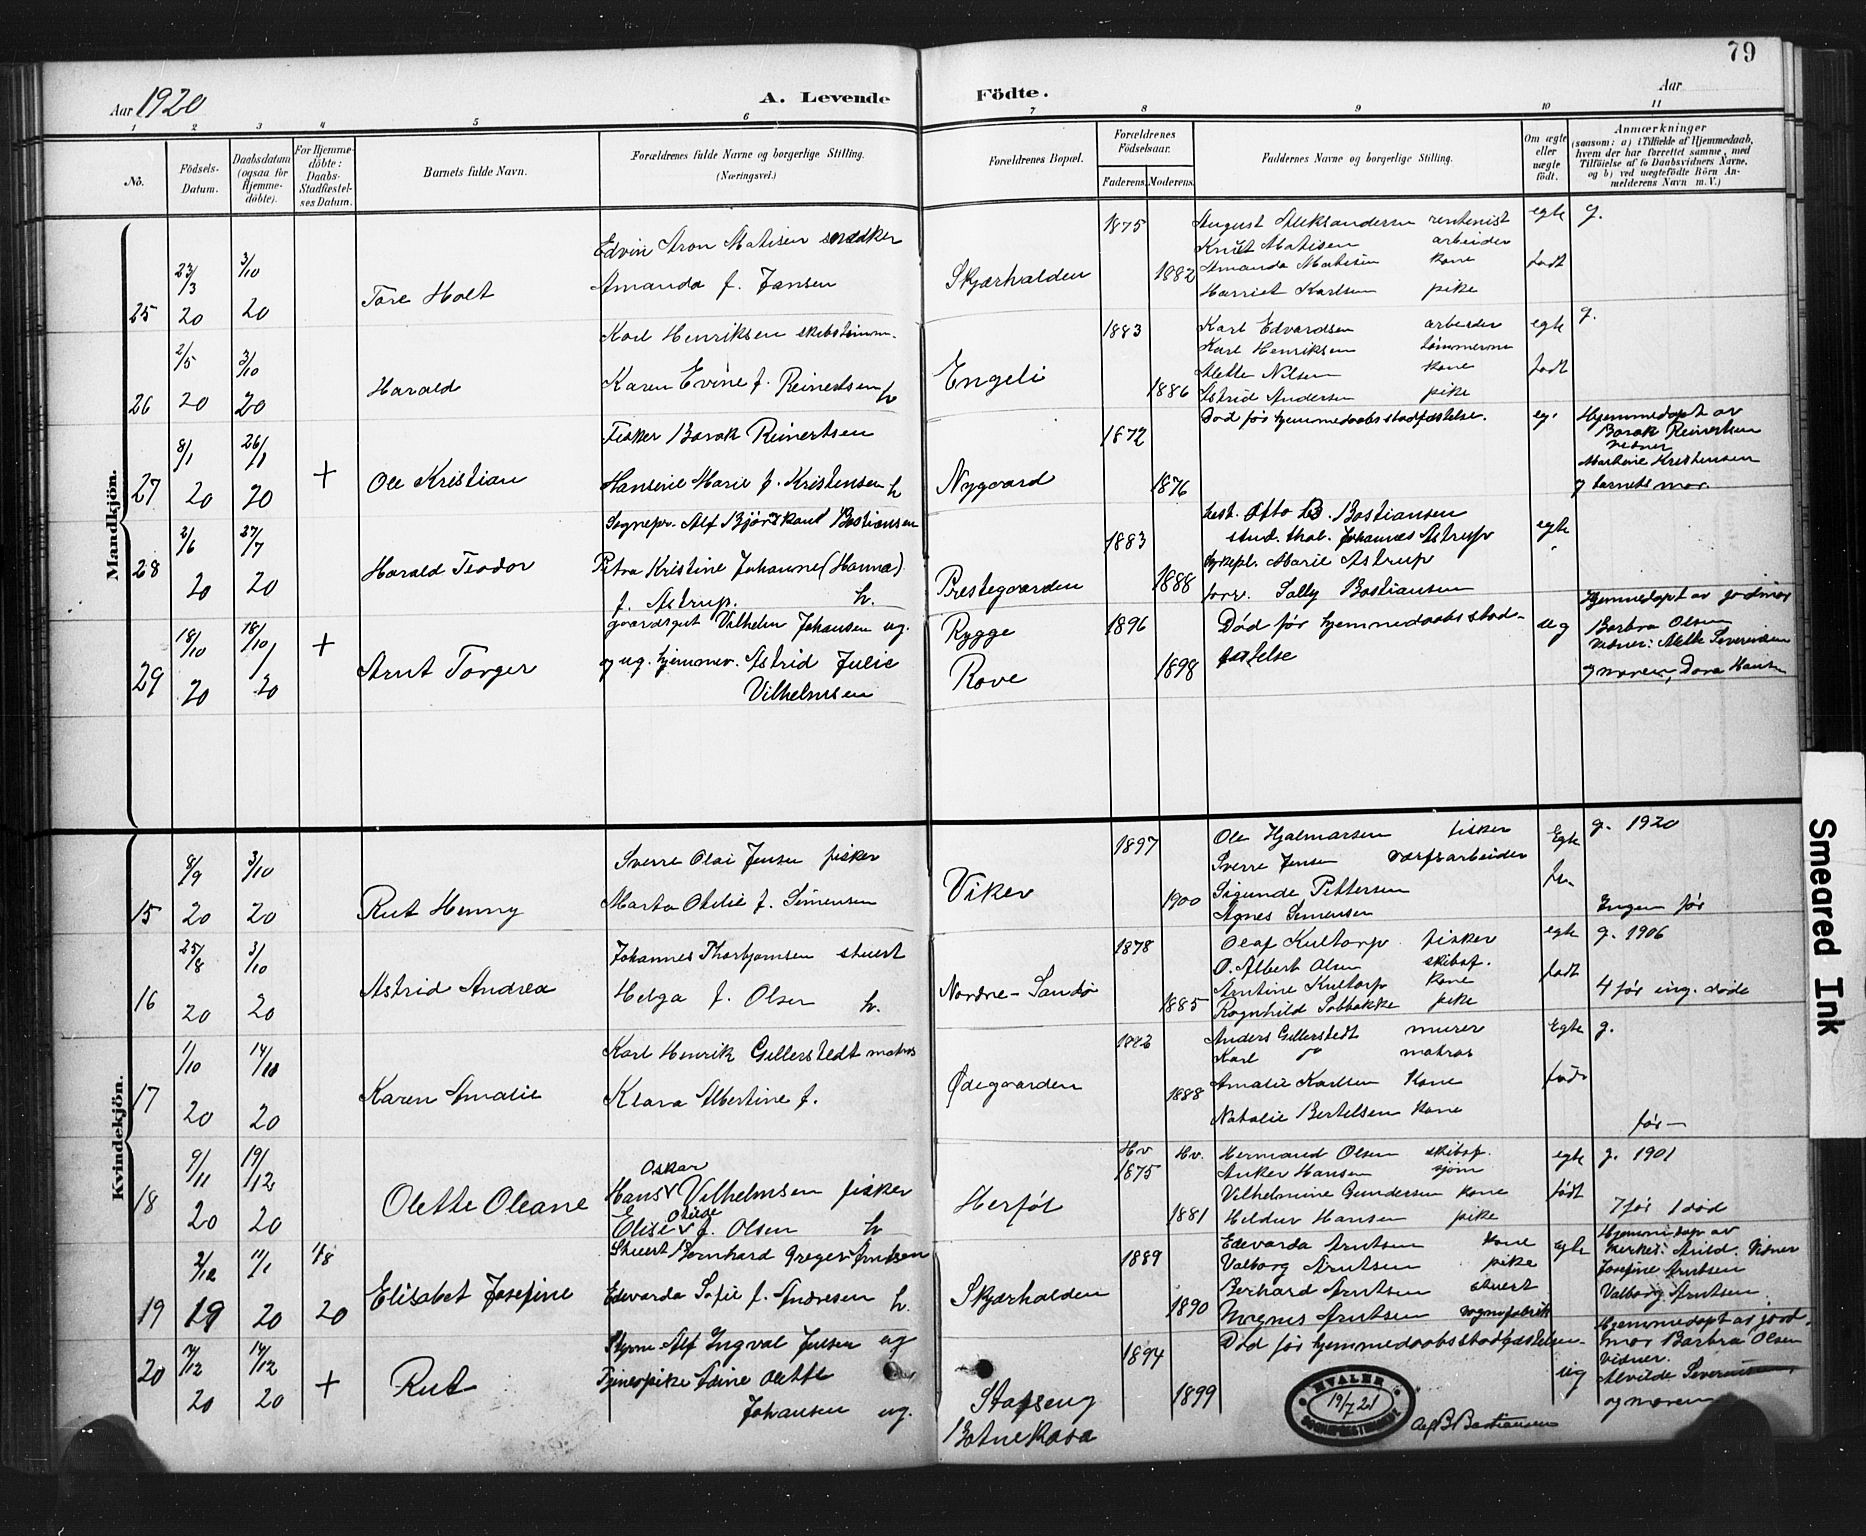 79
Aar 1920
A. Levende Födte.
Aar
1 2 3 4 5 6 7 8 9 10 11
No.
Födsels-Datum.
Daabsdatum (ogsaa for Hjemme-döbte).
For Hjemme-döbte: Daabs-Stadfæstel-ses Datum.
Barnets fulde Navn.
Forældrenes fulde Navne og borgerlige Stilling.
(Næringsvei.)
Forældrenes Bopæl.
Forældrenes Födselsaar.
Faderens. Moderens.
Faddernes Navne og borgerlige Stilling.
Om ægte eller uægte födt.
Anmærkninger
(saasom: a) i Tilfælde af Hjemmedaab,
hvem der har forrettet samme, med
Tilföielse af to Daabsvidners Navne,
og b) ved uægtefödte Börn An-
melderens Navn m. V.)
Mandkjön.
25
23/3 20
3/10 20
Tore Holt
Edvin Aron Matisen snedker
Amanda f. Jansen
Skjærhalden
1875
1882
August Aleksandersen rentenist
Knut Matisen arbeider
Amanda Matisen kone
Harriet Karlsen pike
egte født
g.
26
2/5 20
3/10 20
Harald
Karl Henriksen skibstømm.
Karen Evine f. Reinertsen h
Engeli
1883
1886
Karl Edvardsen arbeider
Karl Henriksen tømmerm
Mette Nilsen kone
Astrid Andersen pike
egte født
g.
27
8/1 20
26/1 20
+
Ole Kristian
Fisker Barak Reinertsen
Hansine Marie f. Kristensen h
Nygaard
1872
1876
Død før hjemmedaabsstadfæstelse.
eg.
Hjemmedøpt av
Barak Reinertsen
Vidner
Martine Kristensen
og barnets mor.
28
2/6 20
27/7 20
Harald Teodor
Sognepr. Alf Bjørnskau Bastiansen
Petra Kristine Johanne (Hanna)
f. Astrup. h.
Prestegaarden
1883
1888
best. Otto B. Bastiansen
stud. theol. Johannes Astrup
sykepl. Marie Astrup
forr. Sally Bastiansen
egte
29
18/10 20
18/10 20
+
Arnt Torger
gaardsgut Vilhelm Johansen ug.
og ug. hjemmev. Astrid Julie
Vilhelmsen
Rygge
Rove
1896
1898
Død før hjemmedaabsstad-
fæstelse
ug
Hjemmedøpt av jordmor
Barbra Olsen
Vidner: Mette Severinsen
og moren, Dora Hansen
Kvindekjön.
15
8/9 20
3/10 20
Rut Henny
Sverre Olai Jensen fisker
Marta Otilie f. Simensen
Viker
1897
1900
Ole Hjalmarsen fisker
Sverre Jensen værfsarbeider
Sigunde Pettersen
Agnes Simensen
Egte
g. 1920
Ingen før
16
25/8 20
3/10 20
Astrid Andrea
Johannes Thorbjørnsen stuert
Helga f. Olsen h.
Nordre-Sandø
1878
1885
Olaf Kultorp fisker
O. Albert Olsen skibsf.
Arntine Kultorp kone
Ragnhild Solbakke pike
egte født
g. 1906
4 før ing. døde
17
1/10 20
14/11 20
Karen Amalie
Karl Henrik Gellerstedt matros
Klara Albertine f.
Ødegaarden
1882
1888
Anders Gellerstedt murer
Karl do matros
Amalie Karlsen kone
Natalie Bertelsen kone
Egte født
g.
før —
18
9/11 20
19/12 20
Olette Oleane
Oskar
Hans v Vilhelmsen fisker
Otilde
Elise v f. Olsen h
Herføl
Hv. 1875
Hv. 1881
Hermand Olsen skibsf.
Anker Hansen sjøm
Vilhelmine Gundersen kone
Heldur Hansen pike
egte født
g. 1901
7 før 1 død
19
2/12 19
11/1 20
1/8 20
Elisabet Josefine
Stuert Bernhard Gregers Arntsen
Edevarda Sofie f. Andresen h.
Skjærhalden
1889
1890
Edevarda Arntsen kone
Valborg Arntsen pike
Berhard Arntsen stuert
Magnus Arntsen vognfabrik
egte
Hjemmedøp av
kirkes. Arild. Vidner
Josefine Arntsen
Valborg Arntsen
20
7/12 20
14/12 20
+
Rut
Styrm Alf Ingval Jensen ug
Tjenespike Adine Olette
Johansen ug.
Stafseng
Botne Rova
1894
1899
Død før hjemmedaabsstadfæstelsen.
ug
Hjemmedøpt av jord-
mor Barbra Olsen
Vidner.
Alvilde Severinsen
og moren
HVALER
19/7 21
SOGNEPRESTEMBEDE
Alf B Bastiansen
Smeared Ink